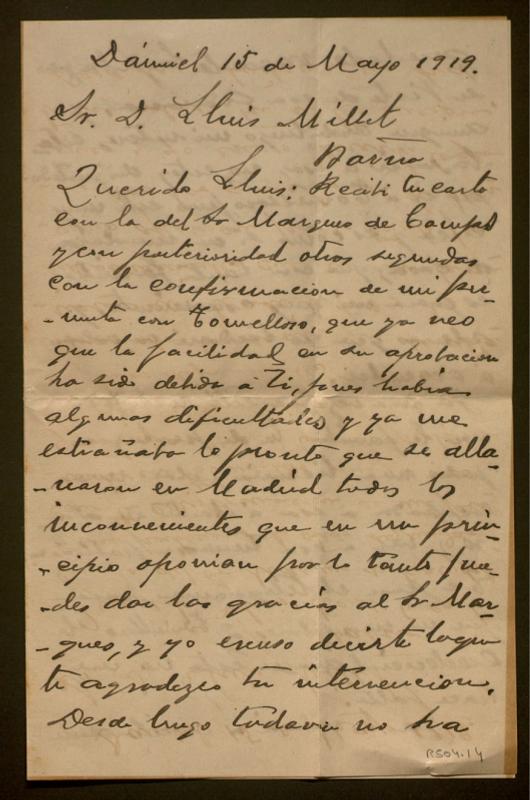 Dáimiel 15 de Mayo 1919.
Sr. D. Lluis Millet
Barna
Querido Lluis: Recibi tu carta
con la del Sr Marques de Camps
y con posterioridad otras segundas
con la confirmacion de mi per-
-muta con Tomelloso, que ya veo
que la facilidad en su aprobacion
ha sido debida á Ti, pues habia
algunas dificultades y ya me
estrañaba lo pronto que se alla-
-naron en Madrid todos los
inconvenientes que en un prin-
-cipio oponian por lo tanto pue-
-des dar las gracias al Sr Mar-
-ques, y yo escuso decirte lo que
te agradezco tu intervencion.
Desde luego todavia no ha
R504.14